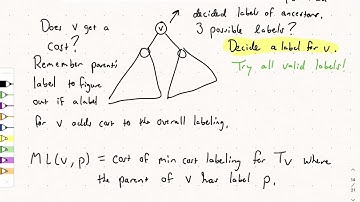 decided labels of ancestors.
Does v get a
cost?
v
3 possible labels?
Remember parent's
label to figure
out if a label
Decide a label for v.
Try all valid labels!
for v adds cost to the overall labeling.
ML(v, p) = cost of min cost labeling for Tv where
the parent of v has label p.